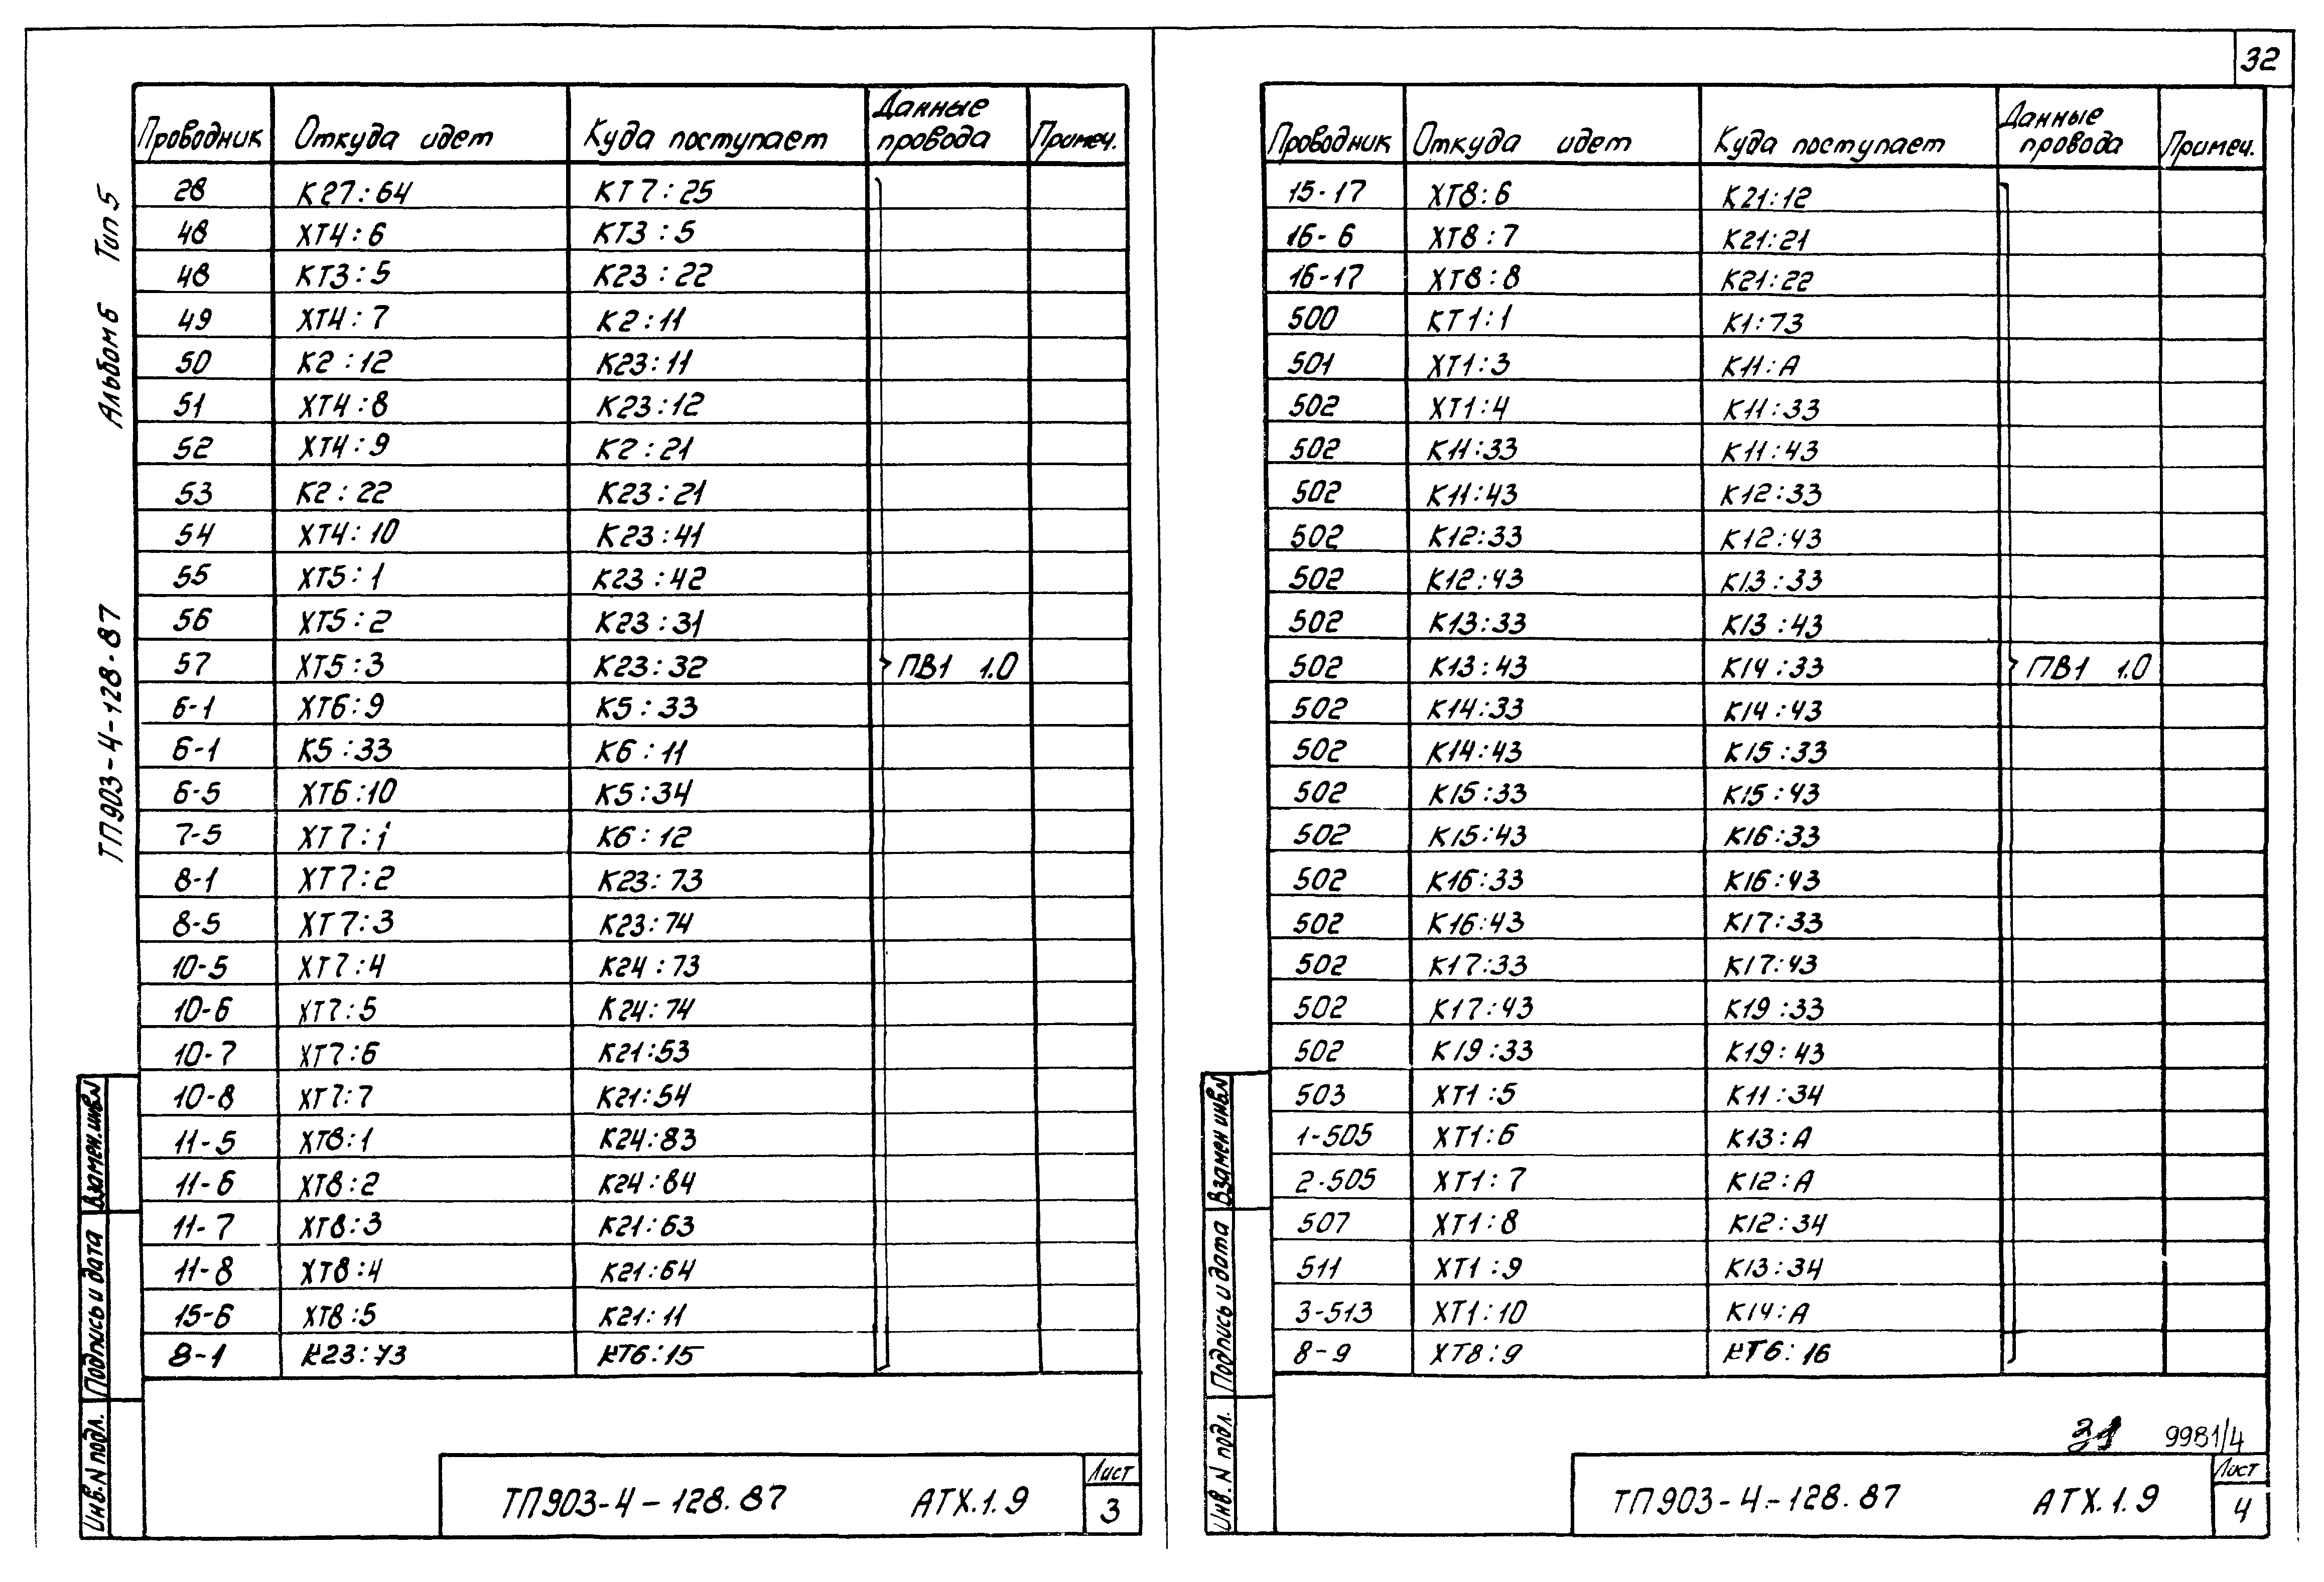 32
Альбом 6 Тип 5
ТП903-4-128.87
Проводник Откуда идет Куда поступает Данные провода Примеч.
28 К27:64 КТ7:25
48 ХТ4:6 КТ3:5
48 КТ3:5 К23:22
49 ХТ4:7 К2:11
50 К2:12 К23:11
51 ХТ4:8 К23:12
52 ХТ4:9 К2:21
53 К2:22 К23:21
54 ХТ4:10 К23:41
55 ХТ5:1 К23:42
56 ХТ5:2 К23:31
57 ХТ5:3 К23:32 ПВ1 1.0
6-1 ХТ6:9 К5:33
6-1 К5:33 К6:11
6-5 ХТ6:10 К5:34
7-5 ХТ7:1 К6:12
8-1 ХТ7:2 К23:73
8-5 ХТ7:3 К23:74
10-5 ХТ7:4 К24:73
10-6 ХТ7:5 К24:74
10-7 ХТ7:6 К21:53
10-8 ХТ7:7 К21:54
11-5 ХТ8:1 К24:83
11-6 ХТ8:2 К24:84
11-7 ХТ8:3 К21:63
11-8 ХТ8:4 К21:64
15-6 ХТ8:5 К21:11
8-1 К23:73 КТ6:15
Взамен.инв.N
Подпись и дата
Инв.N подл.
ТП903-4-128.87 АТХ.1.9
Лист
3
Проводник Откуда идет Куда поступает Данные провода Примеч.
15-17 ХТ8:6 К21:12
16-6 ХТ8:7 К21:21
16-17 ХТ8:8 К21:22
500 КТ1:1 К1:73
501 ХТ1:3 К11:А
502 ХТ1:4 К11:33
502 К11:33 К11:43
502 К11:43 К12:33
502 К12:33 К12:43
502 К12:43 К13:33
502 К13:33 К13:43
502 К13:43 К14:33 ПВ1 1.0
502 К14:33 К14:43
502 К14:43 К15:33
502 К15:33 К15:43
502 К15:43 К16:33
502 К16:33 К16:43
502 К16:43 К17:33
502 К17:33 К17:43
502 К17:43 К19:33
502 К19:33 К19:43
503 ХТ1:5 К11:34
1-505 ХТ1:6 К13:А
2-505 ХТ1:7 К12:А
507 ХТ1:8 К12:34
511 ХТ1:9 К13:34
3-513 ХТ1:10 К14:А
8-9 ХТ8:9 КТ6:16
Взамен инв.N
Подпись и дата
Инв.N подл.
9981/4
ТП903-4-128.87 АТХ.1.9
Лист
4